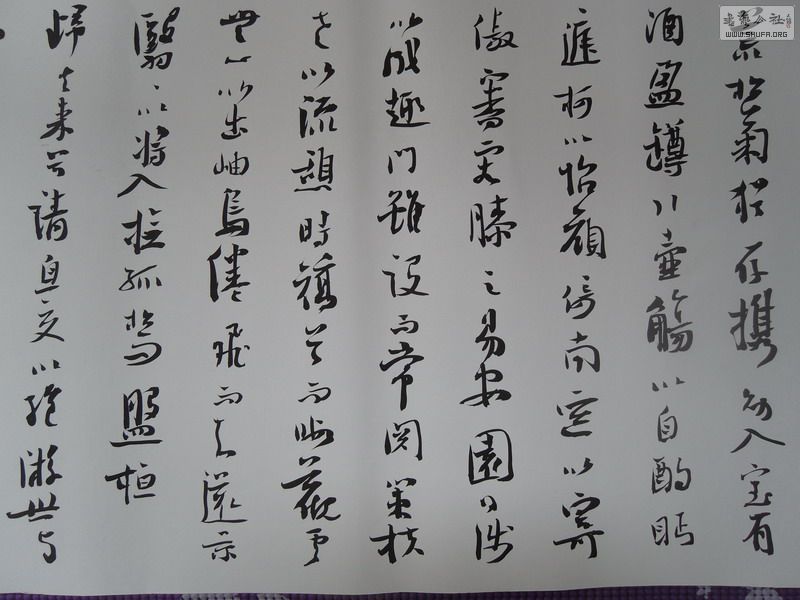 荒松菊猶存攜幼入室有
酒盈罇引壺觴以自酌眄
庭柯以怡顏倚南窗以寄
傲審容膝之易安園日涉
以成趣門雖設而常關策扶
老以流憩時矯首而遐觀雲
無心以出岫鳥倦飛而知還景
翳翳以將入撫孤松而盤桓
歸去來兮請息交以絕游世與
WWW.SHUFA.ORG